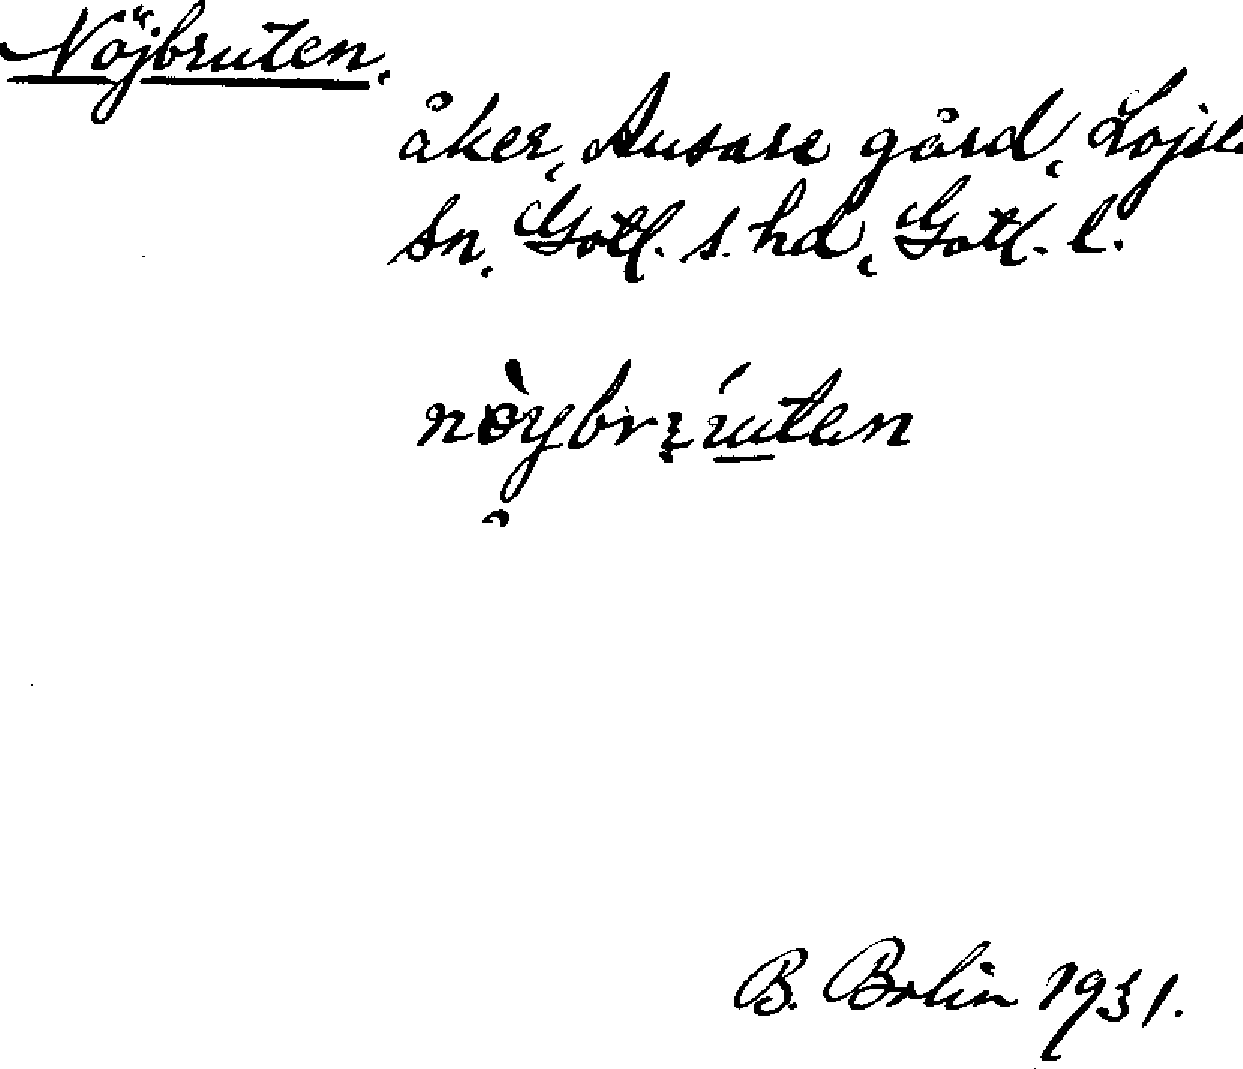 Nöjbruten.
åker, Ausare gård, Lojsta
sn, Gotl. s. hd, Gotl. l.
B. Bolin 1931.